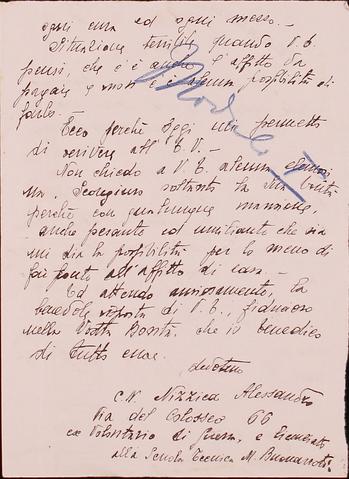 ogni cura ed ogni mezzo.-
Situazione terribile quando V. E.
pensi, che c'è anche l'affitto da
pagare e non c'è alcuna possibilità di
farlo.-
Ecco perchè oggi mi permetto
di scrivere all'E.V.-
Non chiedo a V. E. alcuna
ma la Sua bontà
perchè con qualunque mansione,
anche pesante ed umiliante che sia
mi dia la possibilità per lo meno di
far fronte all'affitto di casa.-
Ed attendo ansiosamente, la
benevole risposta di V. E., fiducioso
nella Vostra Bontà, che io benedico
di tutto cuore.
devotmo
C.N. Nizzica Alessandro
Via del Colosseo 66
ex Volontario di guerra, e
alla Scuola Tecnica M. Buonarroti